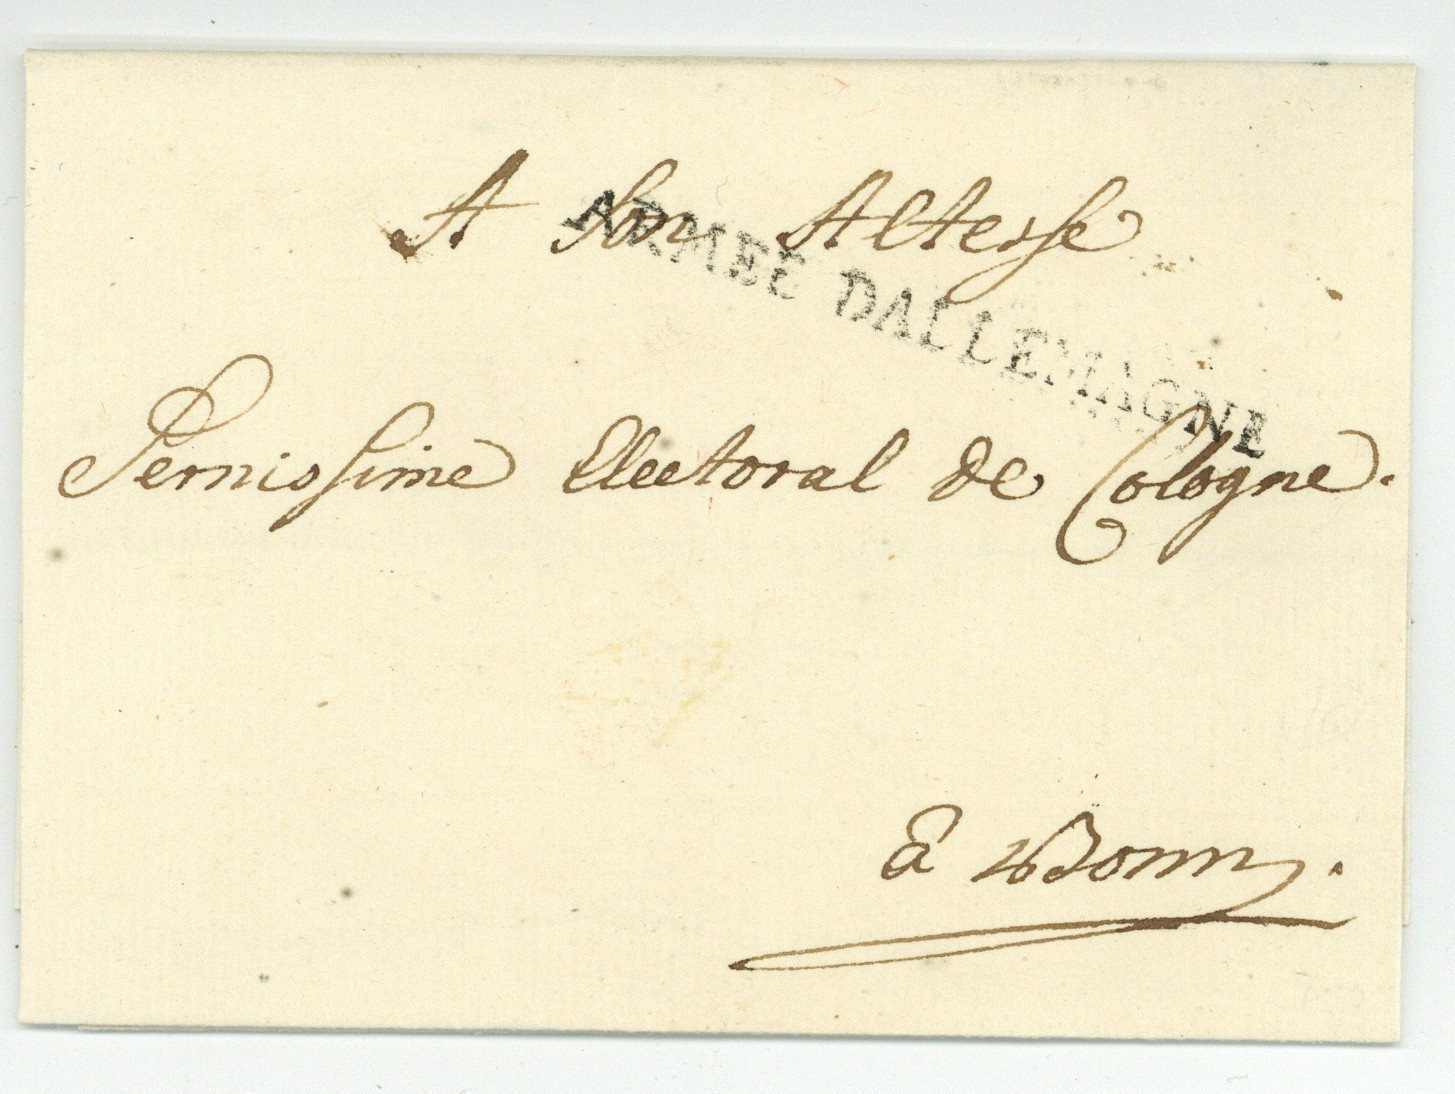 A Son Altesse
ARMEE DALLEMAGNE
Sernissime Electoral de Cologne.
à Bonn.